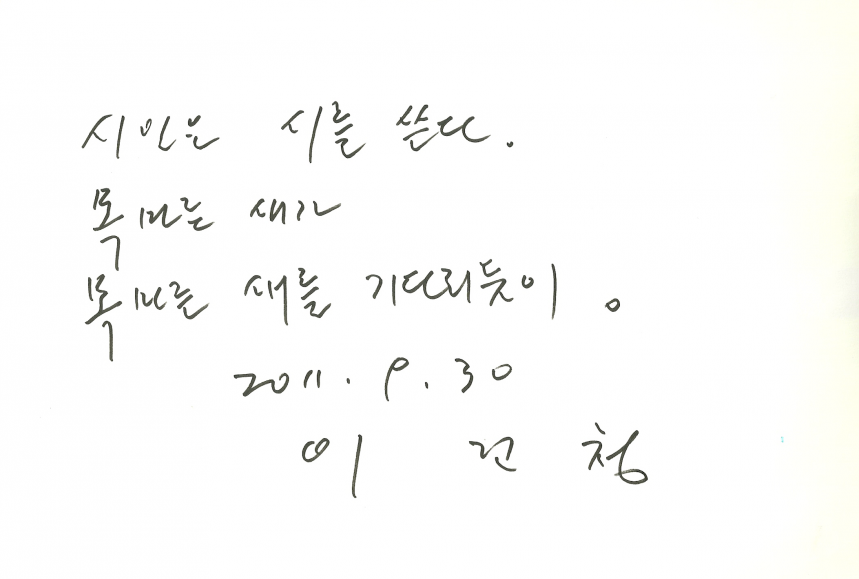 시인은 시를 쓴다.
목마른 새가
목마른 새를 기다리듯이。
2011. 9. 30
이 건 청